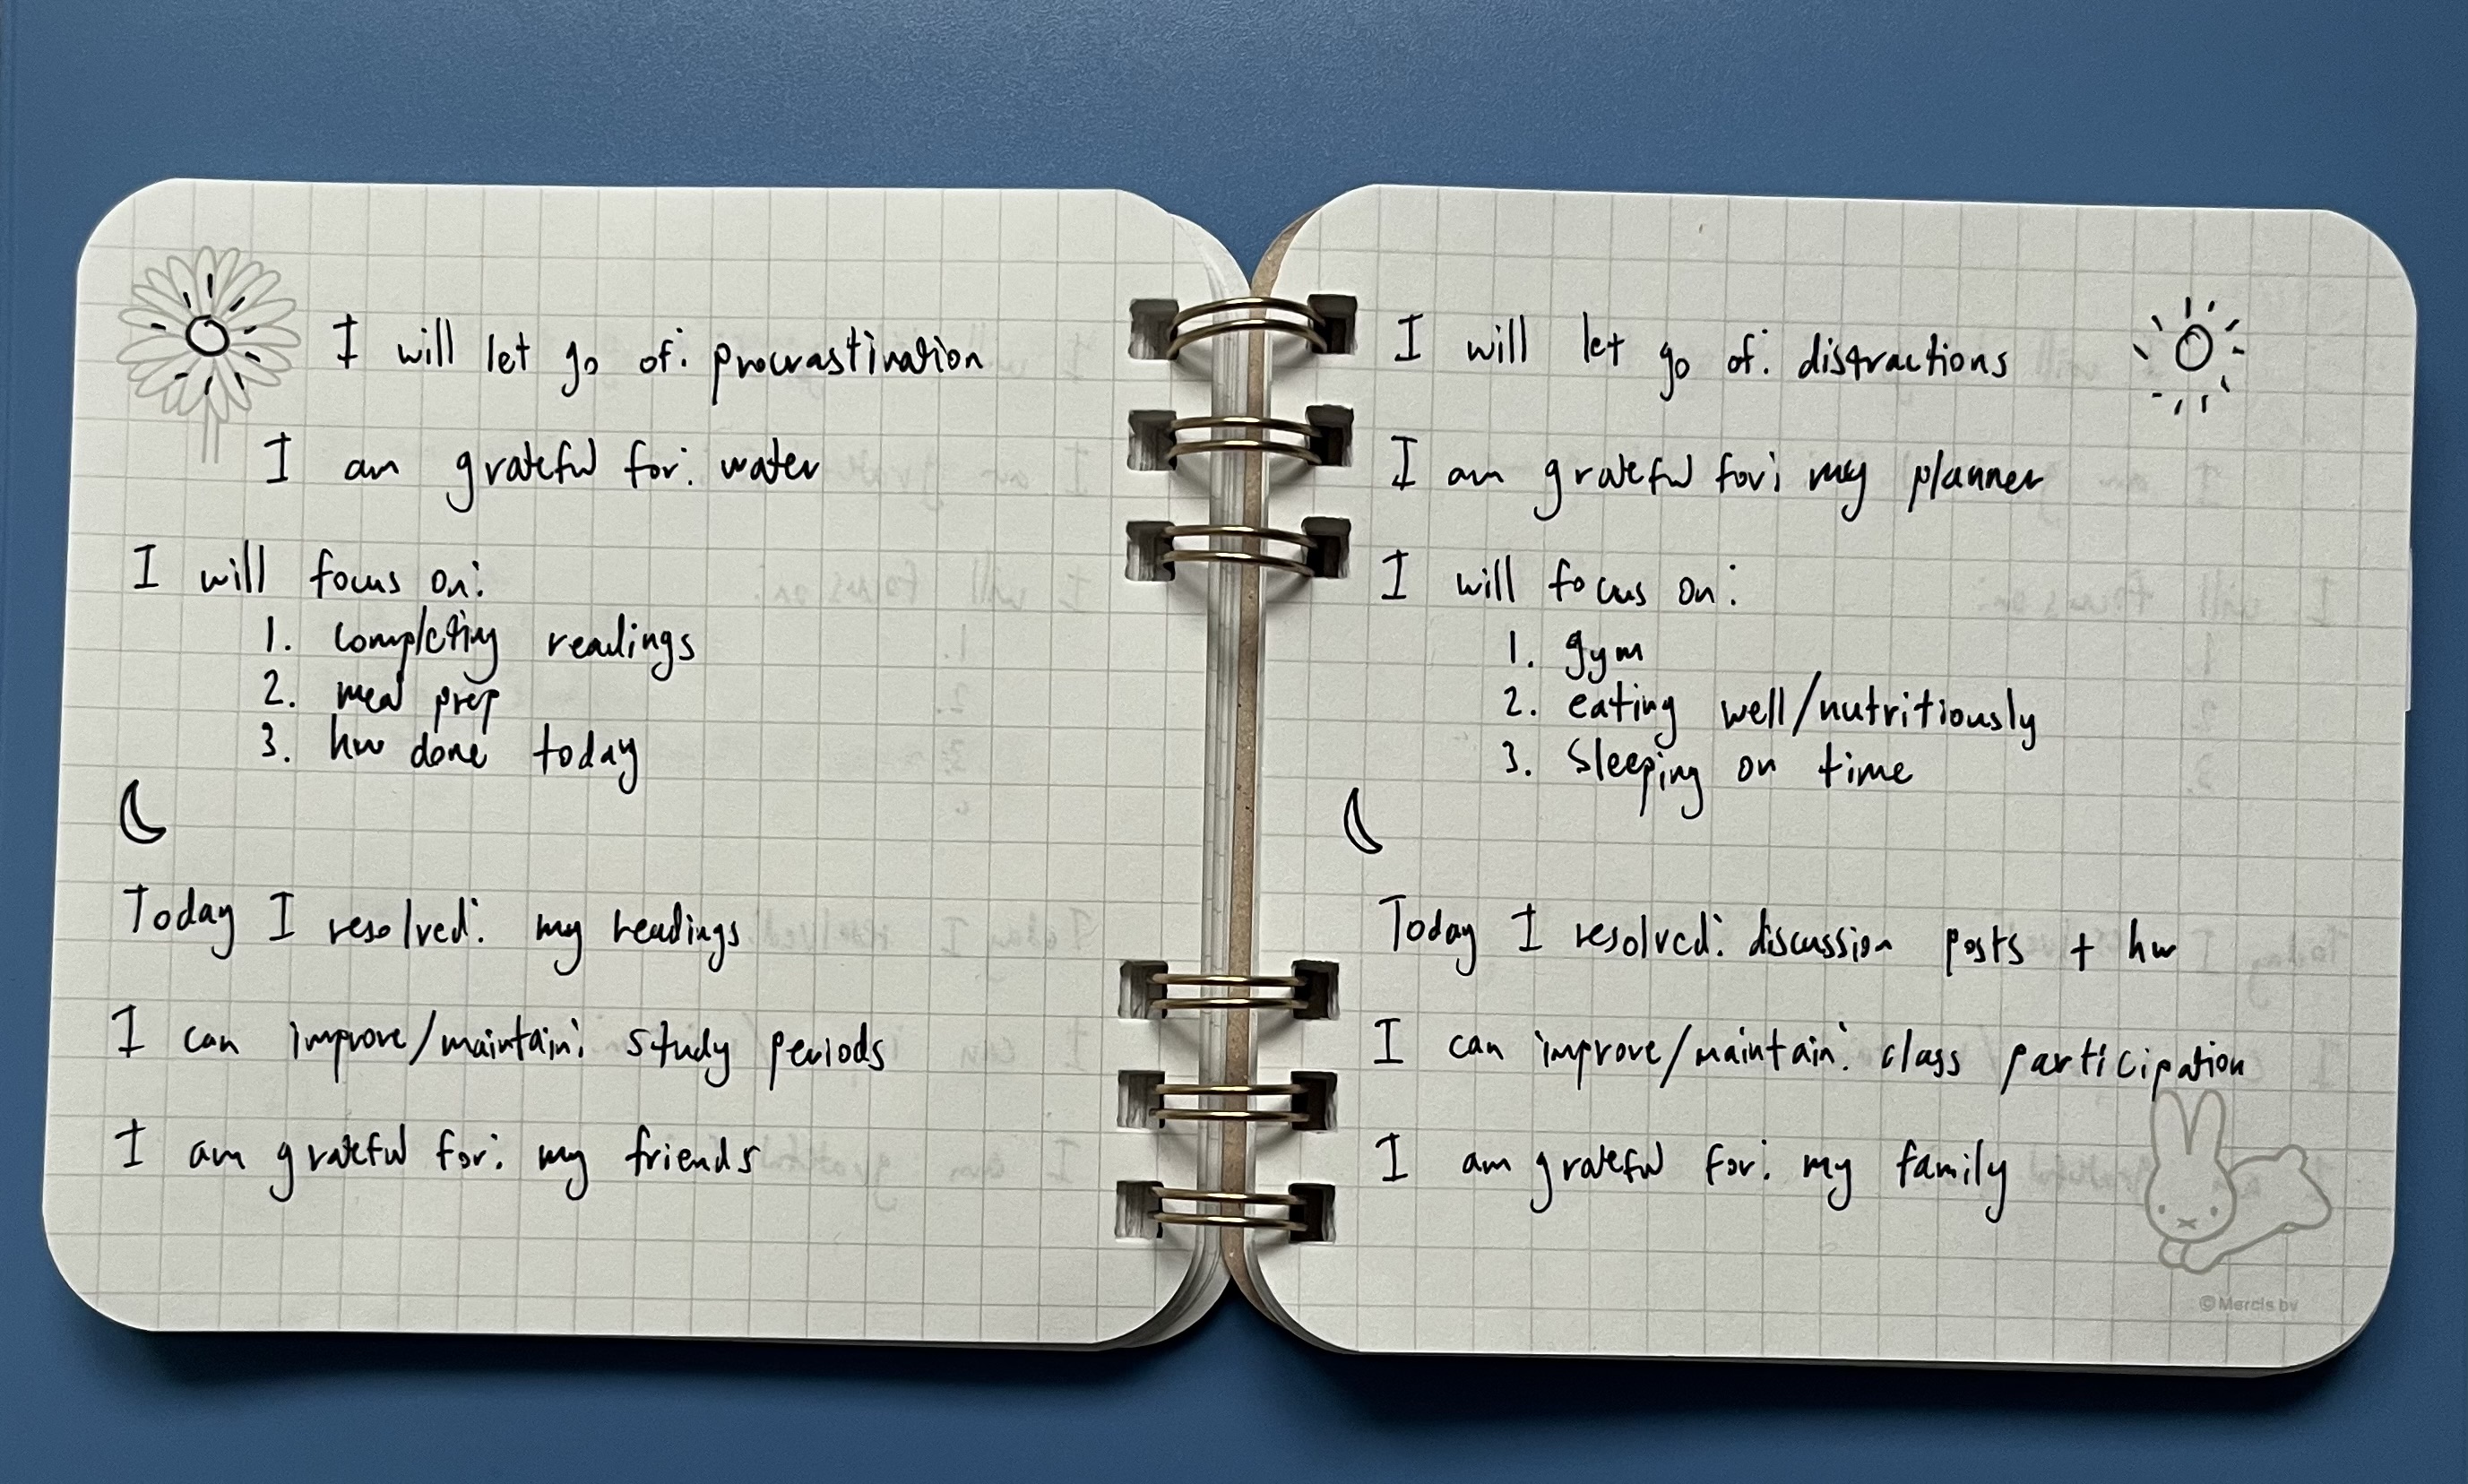 I will let go of: procrastination
I am grateful for: water
I will focus on:
1. completing readings
2. meal prep
3. hw done today
Today I resolved: my readings
I can improve/maintain: study periods
I am grateful for: my friends
I will let go of: distractions
I am grateful for: my planner
I will focus on:
1. gym
2. eating well/nutritiously
3. Sleeping on time
Today I resolved: discussion posts + hw
I can improve/maintain: class participation
I am grateful for: my family
©Mercis bv